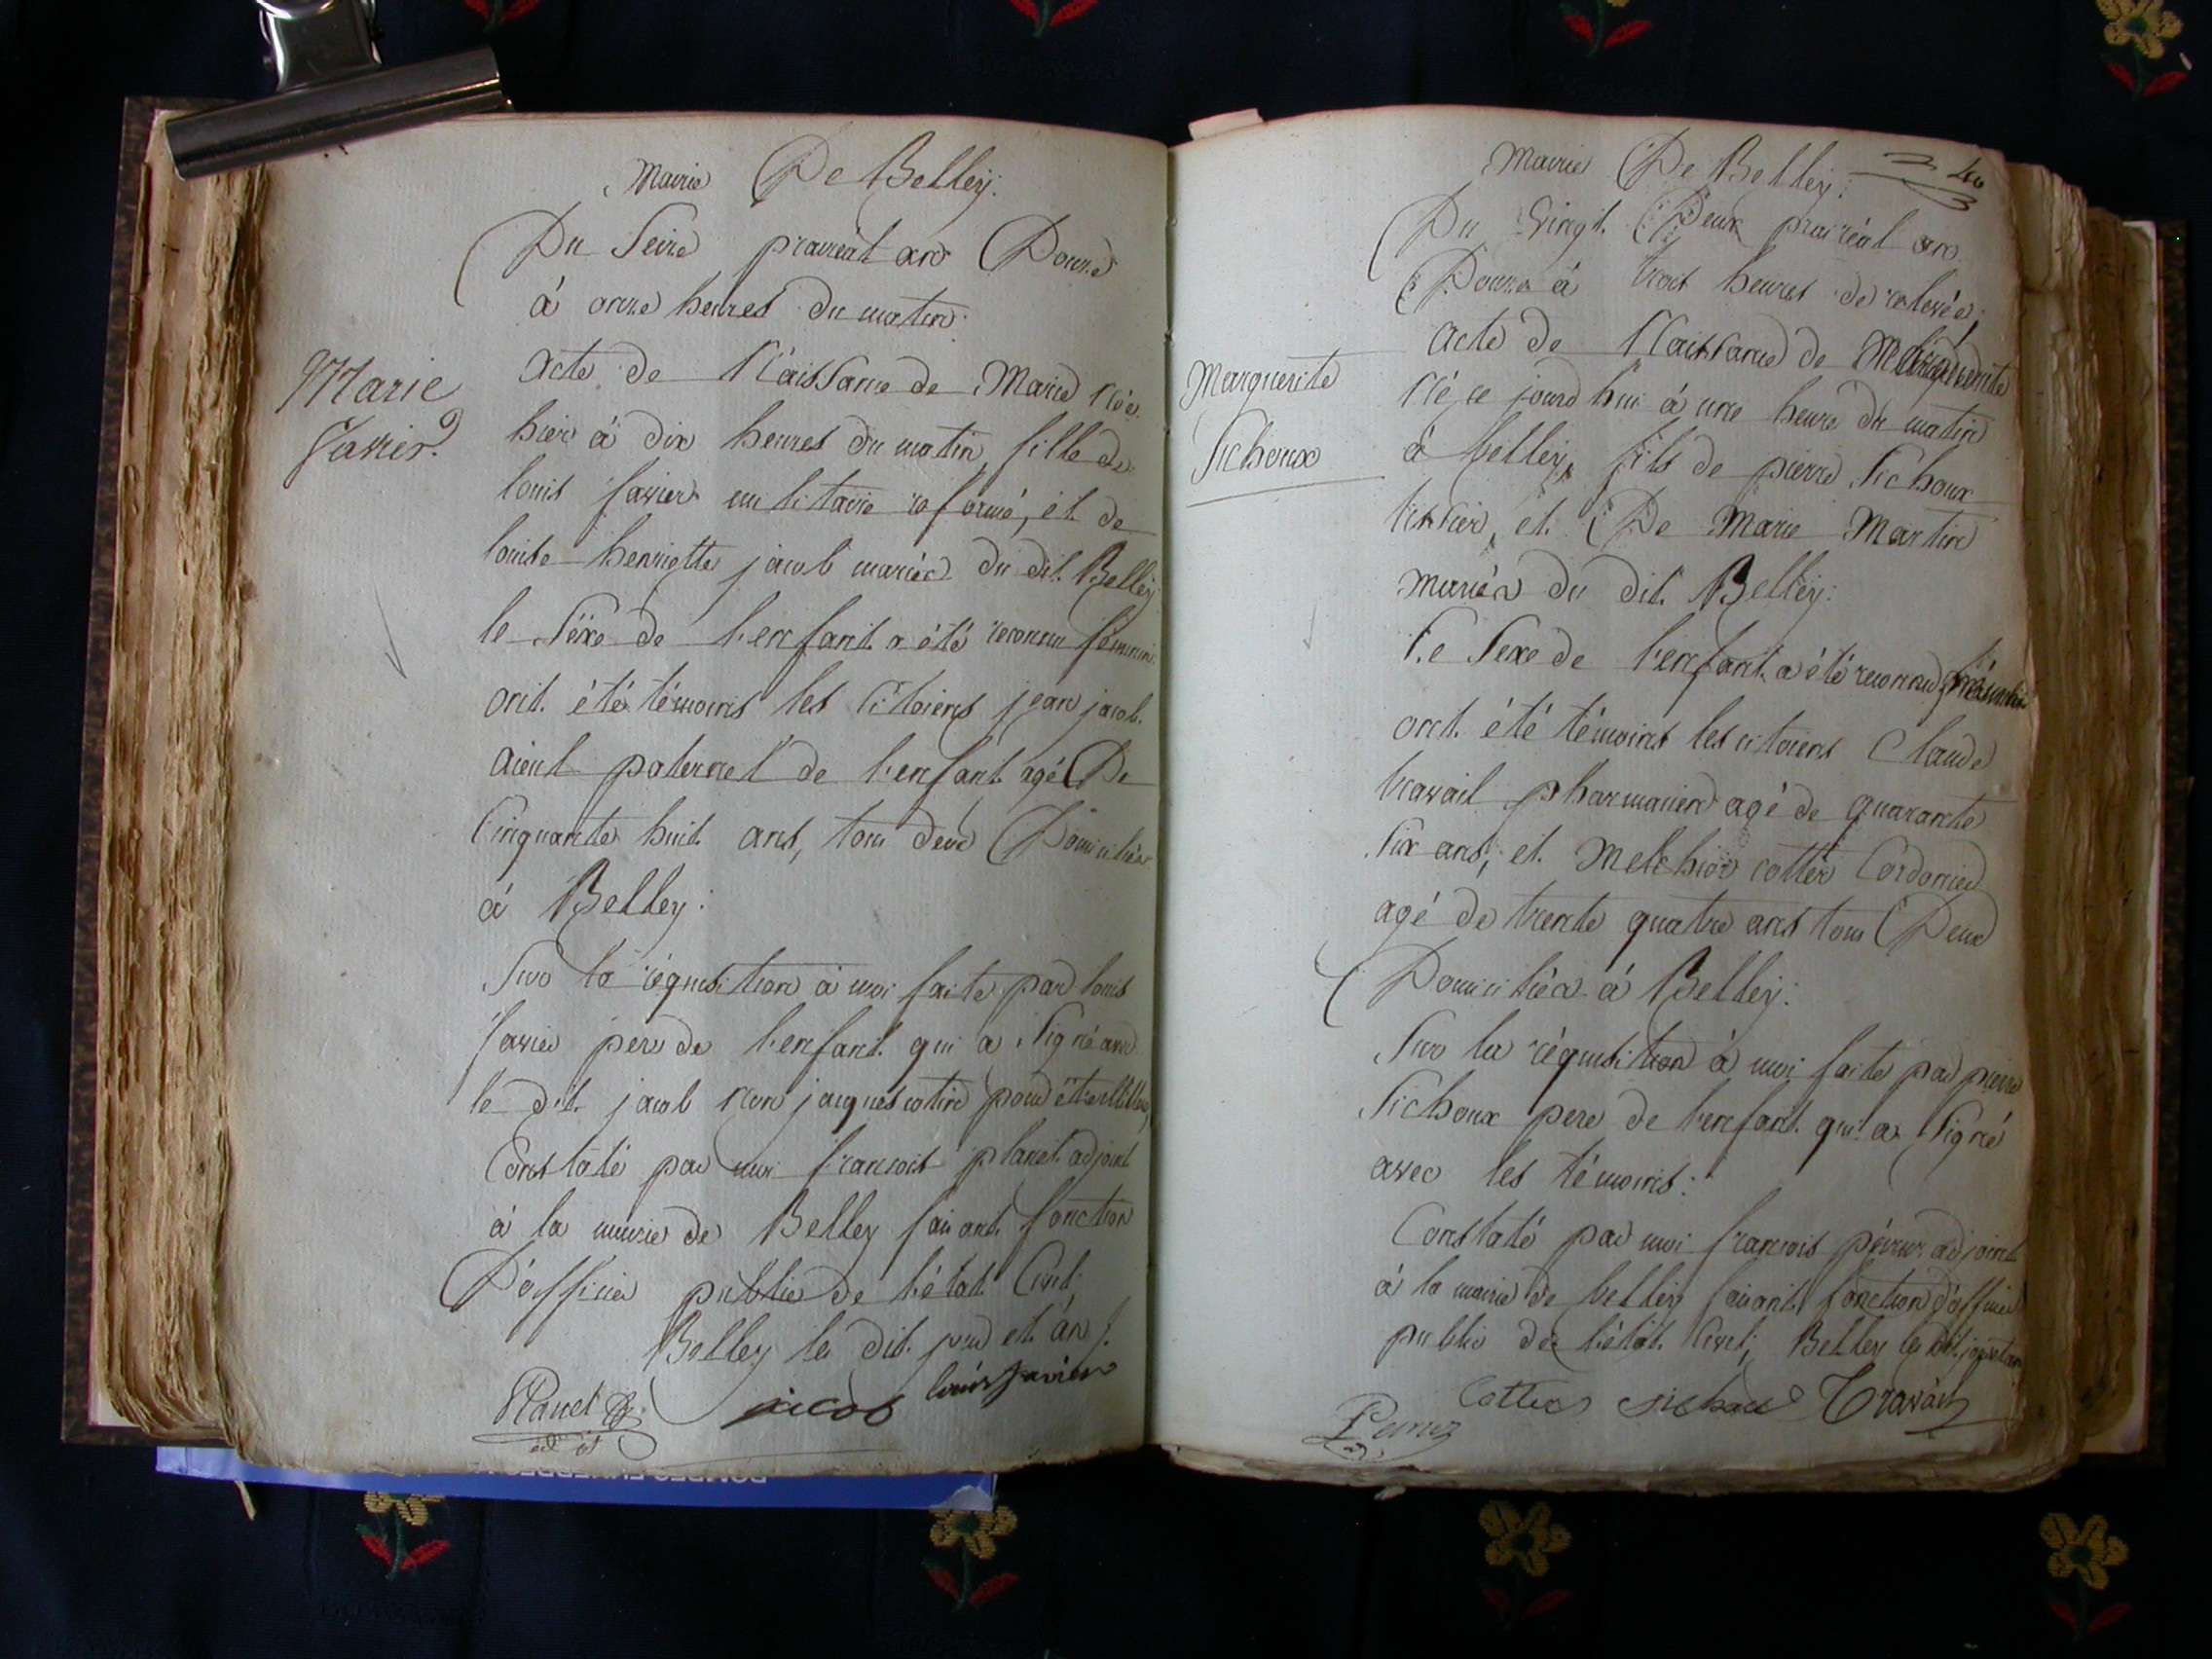 Mairie De Belley:
Du Seize prairéal an Douze
à onze heures du matin.
Marie
Javier
acte de Naissance de Marie Née
hier à dix heures du matin fille de
louis favier militaire reformé, et de
louise henriette jacob mariés du dit Belley
le Sexe de l'enfant a été reconnu féminin
ont été témoins les Citoiens jean jacob
aieul paternel de l'enfant agé De
Cinquante huit ans, tous deux Domiciliés
à Belley:
Sur la réquisition à moi faite par louis
favier pere de l'enfant qui a Signé avec
le dit jacob Non jacques cotin pour être illitéré,
Constaté par moi francois planet adjoint
à la mairie de Belley faisant fonction
D'officier public de l'état Civil,
Belley le dit jour et an
Planet
adjt
jacob
louis favier
Mairie De Belley:
40
Du Vingt Deux prairéal an
Douze à trois heures de relevée,
Marguerite
Sichoux
acte de Naissance de Marguerite
Né ce jourd'hui à une heure du matin
à belley, fils de pierre Sichoux
tissier, et De Marie Martin
mariés du dit Belley:
Le Sexe de l'enfant a été reconnu
ont été témoins les citoiens Claude
travail pharmacien agé de quarante
Six ans, et Melchior cottier Cordonier
agé de trente quatre ans tous Deux
Domiciliés à Belley:
Sur la réquisition à moi faite par pierre
Sichoux pere de l'enfant qui a Signé
avec les témoins:
Constaté par moi francois adjoint
à la mairie de belley faisant fonction d'officier
public de l'état Civil, Belley le dit jour et an
Cottier Sichoux Travail